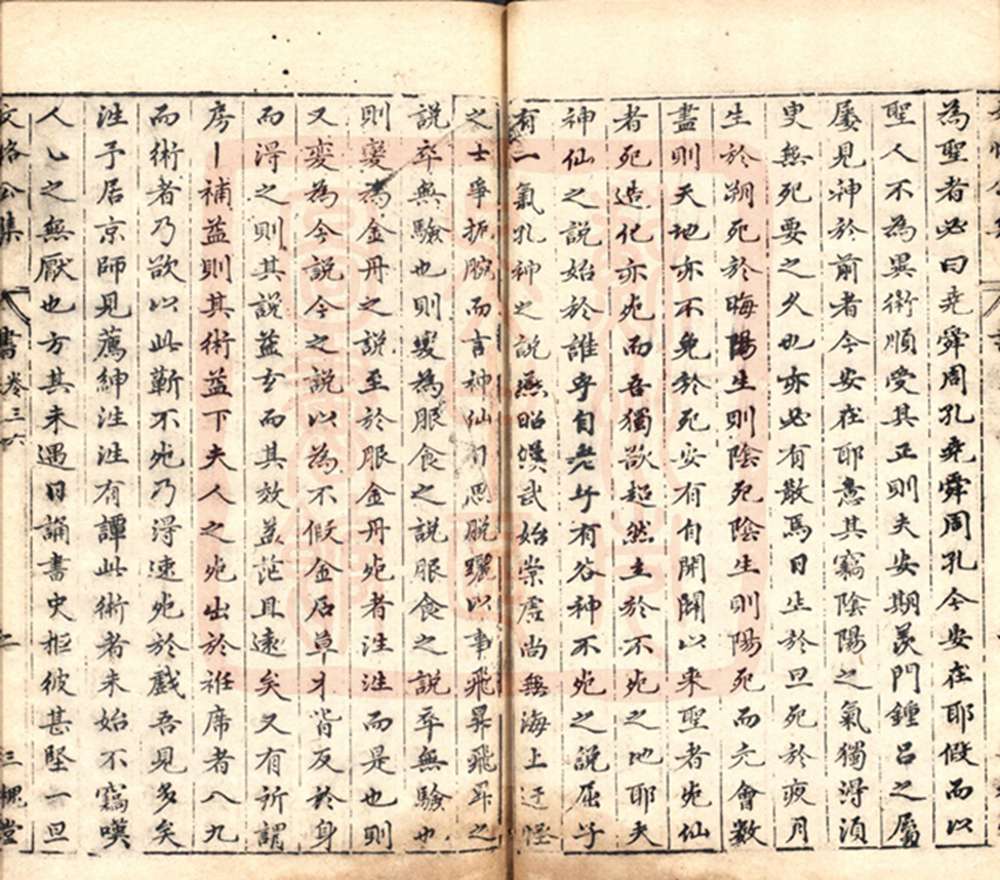 為聖者必曰堯舜周孔堯舜周孔今安在耶假而以
聖人不為異術順受其正則夫安期羨門鍾呂之屬
屡見神於前者今安在耶意其竊陰陽之氣獨淂湏
㬰無死要之久也亦必有散焉日生於旦死於夜月
生於朔死於晦陽生則陰死陰生則陽死而元會數
盡則天地亦不免於死安有自開闢以来聖者死仙
者死造化亦死而吾獨欲超然立於不死之地耶夫
神仙之說始於誰乎自老子有谷神不死之說屈子
有一氣孔神之說燕昭漢武始崇虛尚無海上迂怪
之士爭扼腕而言神仙自思脫屣以事飛昇飛昇之
說卒無驗也則變為服食之說服食之說卒無驗也
則變為金丹之說至於服金丹死者泩泩而是也則
又變為今說今之說以為不假金石草才皆反於身
而淂之則其說益玄而其效益茫且遠矣又有所謂
房一補益則其術益下夫人之死出於袵席者八九
而術者乃欲以此蘄不死乃淂速死於戲吾見多矣
泩予居京師見薦紳泩泩有譚此術者未始不竊嘆
人人之無厭也方其未遇日誦書史柩彼甚堅一旦
文恪公集 書 卷三六 二 三槐堂